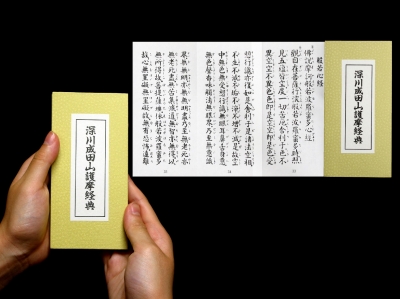 深川成田山護摩経典
般若心経
佛説摩訶般若波羅蜜多心経
観自在菩薩行深般若波羅蜜多時照
見五蘊皆空度一切苦厄舎利子色不
異空空不異色色即是空空即是色受
想行識亦復如是舎利子是諸法空相
不生不滅不垢不浄不増不減是故空
中無色無受想行識無眼耳鼻舌身意
無色聲香味觸法無眼界乃至無意識
界無無明亦無無明盡乃至無老死亦
無老死盡無苦集滅道無智亦無得以
無所得故菩提薩埵依般若波羅蜜多
故心無罣礙無罣礙故無有恐怖遠離
深川成田山護摩経典